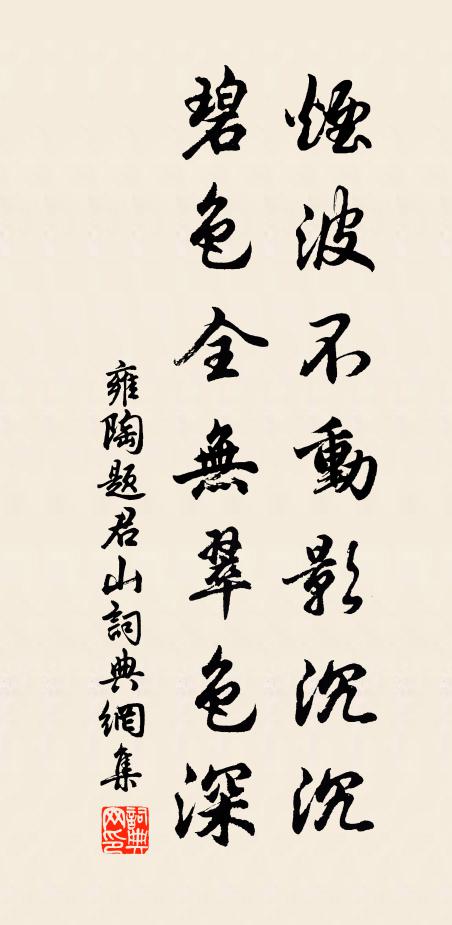 煙波不動影沉沉
碧色全無翠色深
雍陶題君山詞典網集
詞典
网印